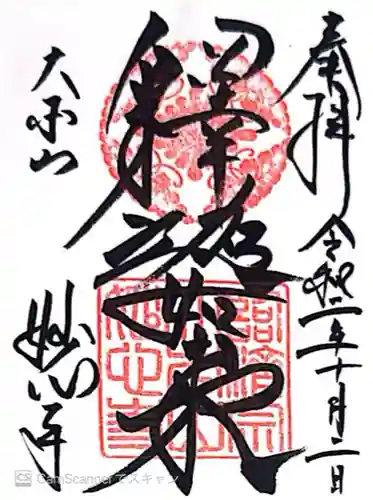 奉拝
令和二年十月二日
釋迦如来
大本山
妙心寺
臨済宗
大本山
妙心寺
CS CamScannerでスキャン